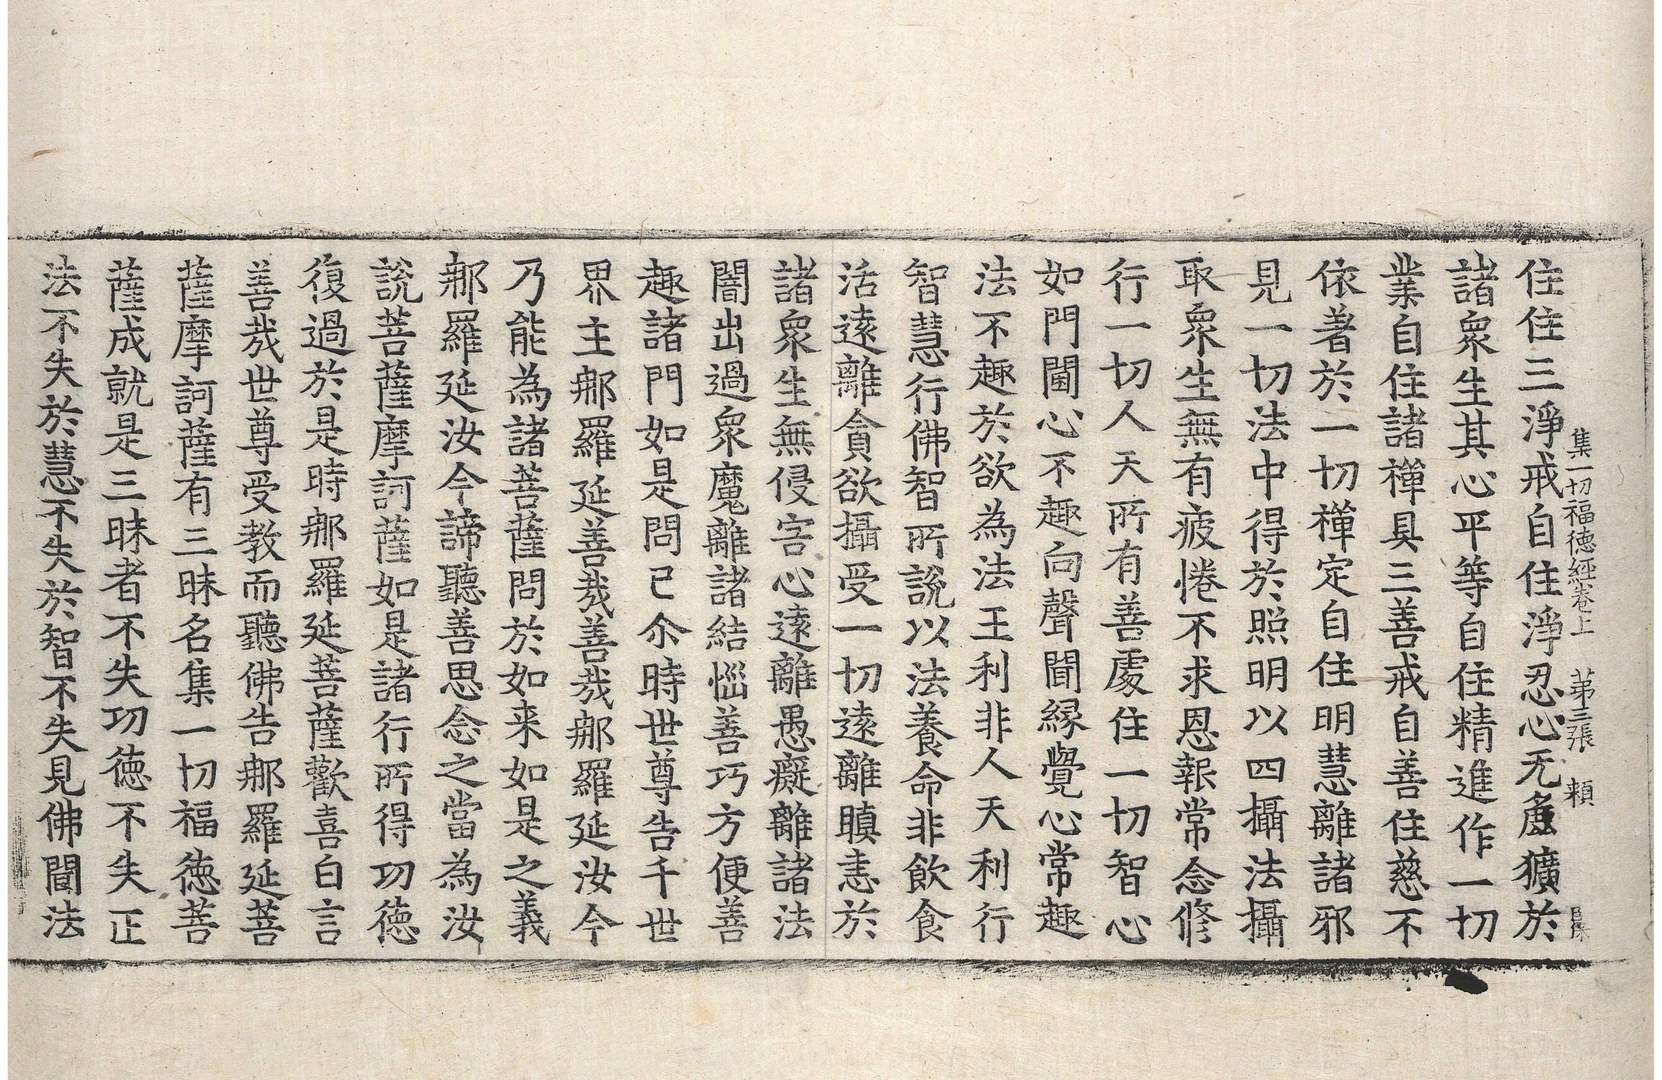 集一切福德經卷上 第三張 賴
住住三淨戒自住淨忍心无麁獷於
諸衆生其心平等自住精進作一切
業自住諸禪具三善戒自善住慈不
依著於一切禪定自住明慧離諸邪
見一切法中得於照明以四攝法攝
取衆生無有疲惓不求恩報常念修
行一切人天所有善處住一切智心
如門閫心不趣向聲聞緣覺心常趣
法不趣於欲為法王利非人天利行
智慧行佛智所說以法養命非飲食
活遠離貪欲攝受一切遠離瞋恚於
諸衆生無侵害心遠離愚癡離諸法
闇出過衆魔離諸結惱善巧方便善
趣諸門如是問已尒時世尊告千世
界主那羅延善哉善哉那羅延汝今
乃能為諸菩薩問於如来如是之義
那羅延汝今諦聽善思念之當為汝
說菩薩摩訶薩如是諸行所得功德
復過於是時那羅延菩薩歡喜白言
善哉世尊受教而聽佛告那羅延菩
薩摩訶薩有三昧名集一切福德菩
薩成就是三昧者不失功德不失正
法不失於慧不失於智不失見佛聞法